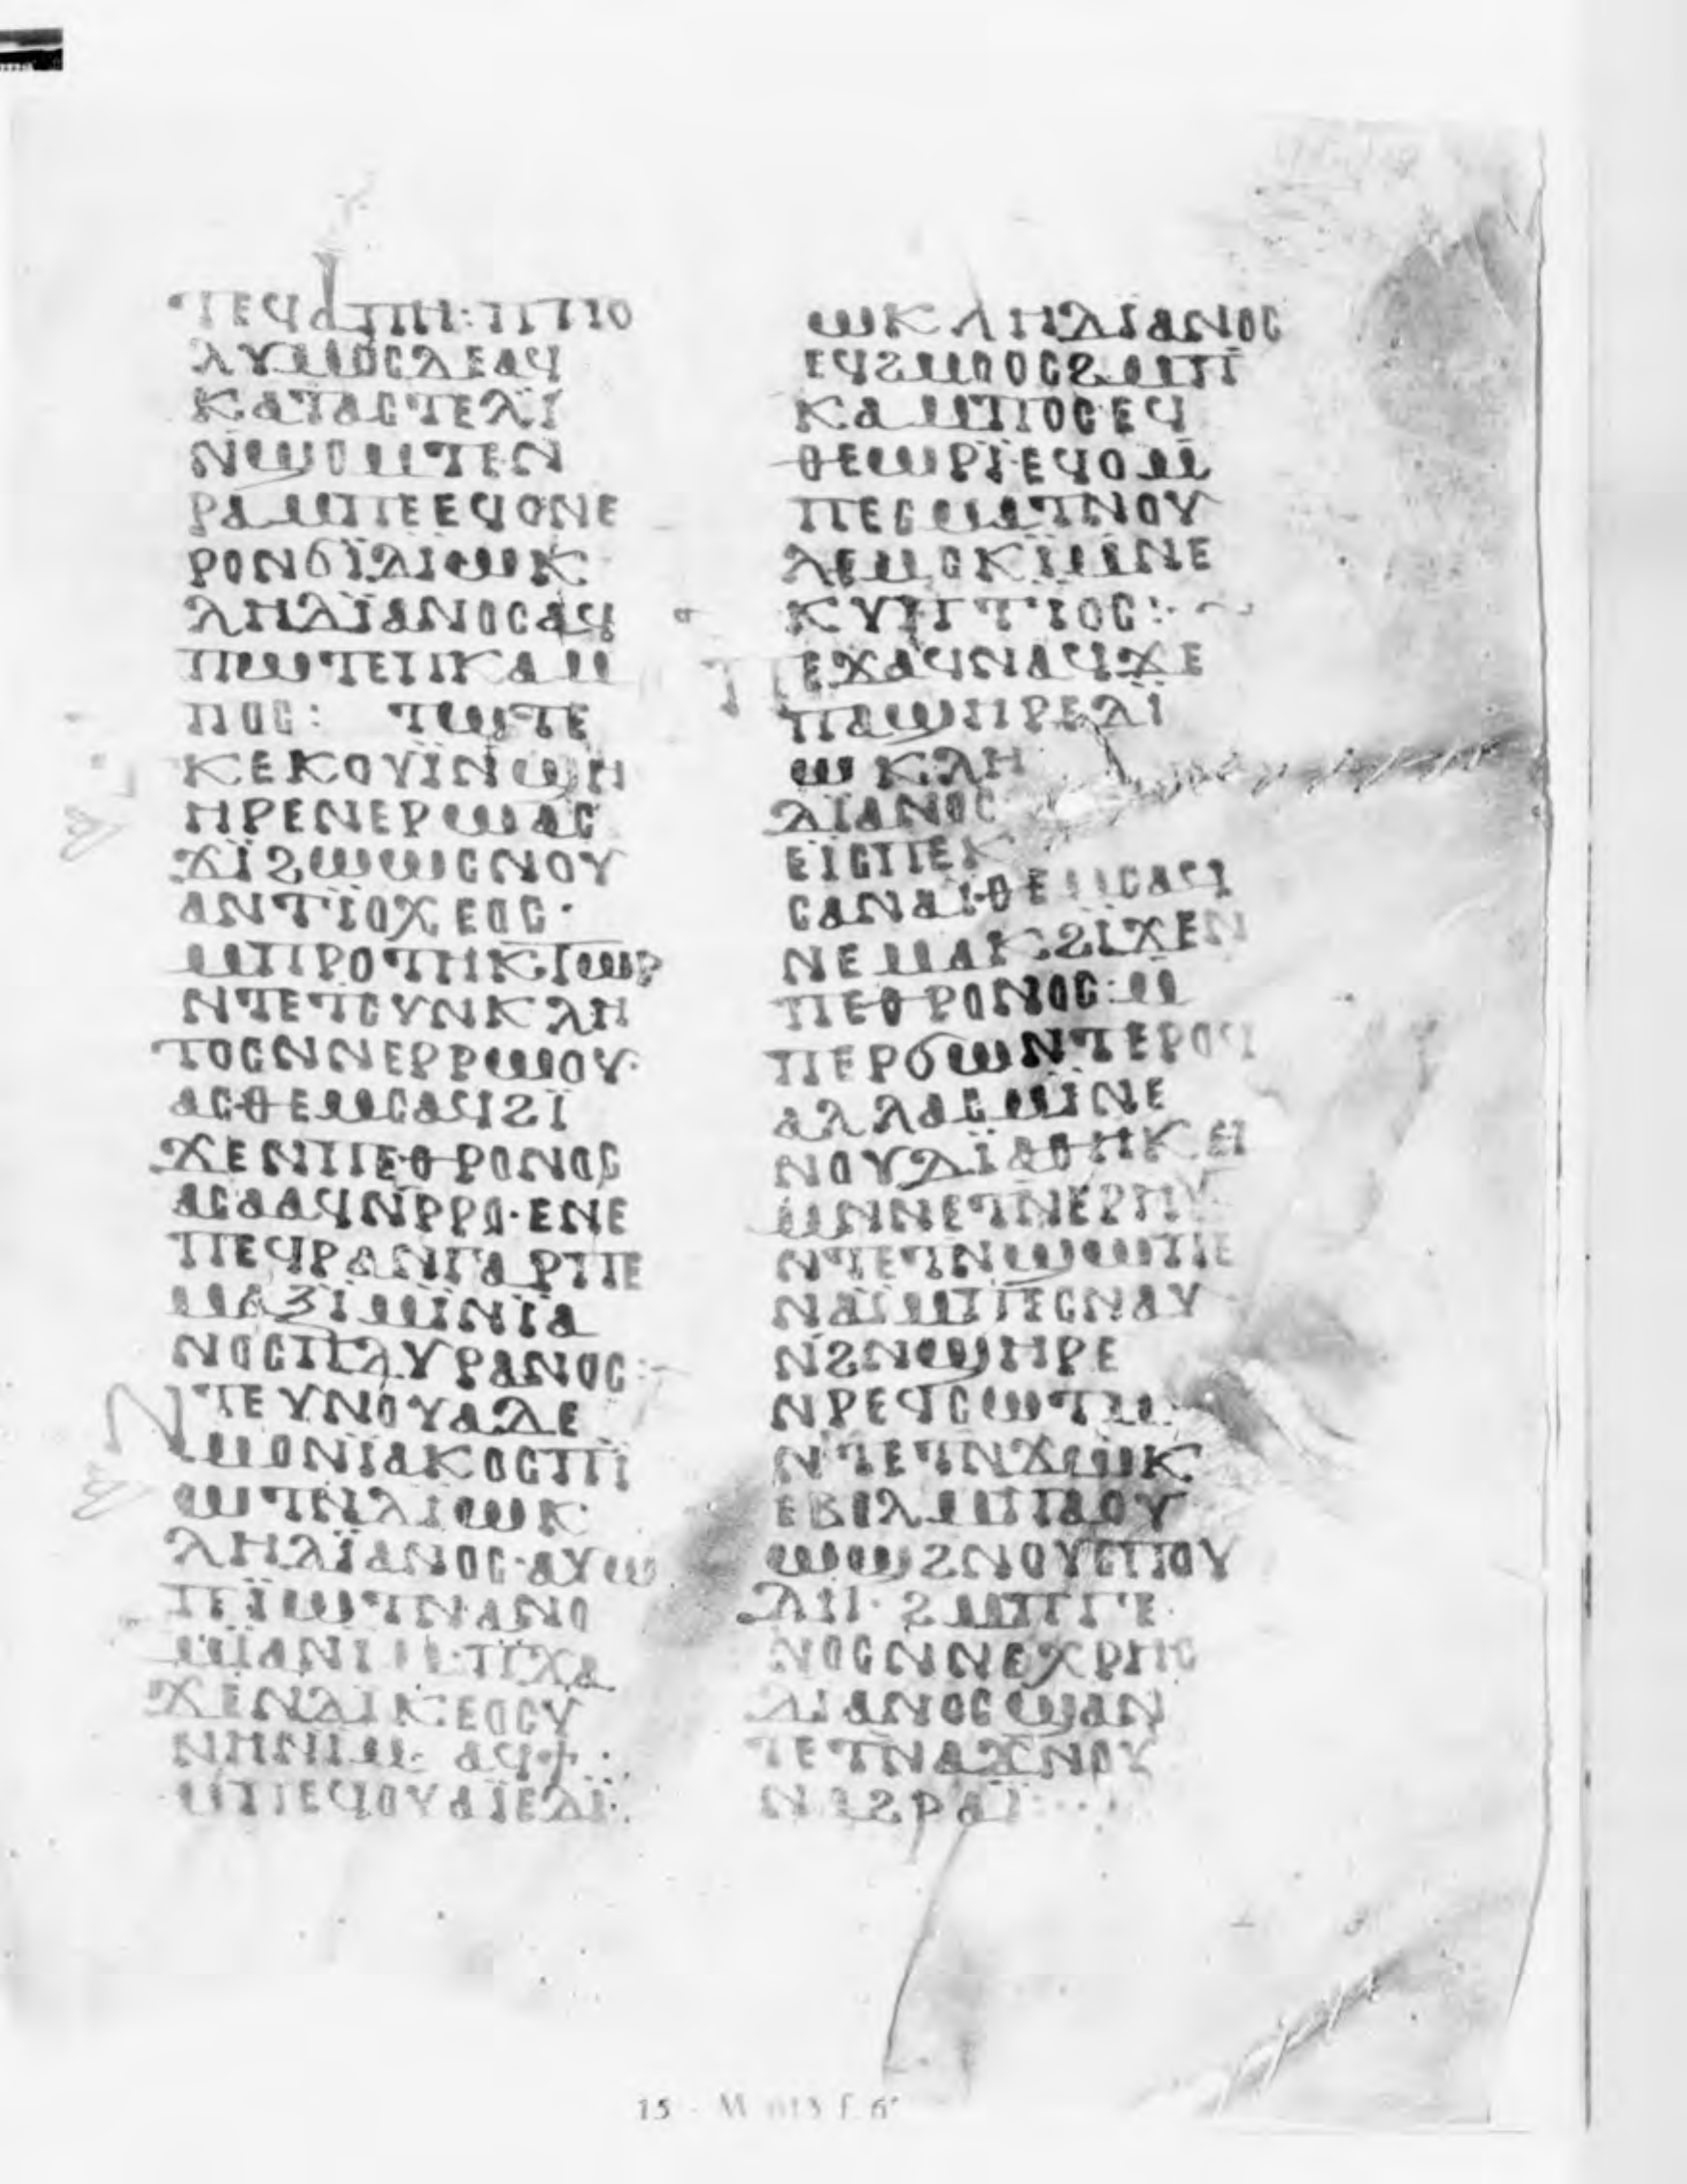 ⲧⲉϥⲁⲡⲏ: ⲡⲡⲟ
ⲗⲩⲙⲟⲥⲇⲉⲁϥ
ⲕⲁⲧⲁⲥⲧⲉⲗⲓ̈
ⲛϣⲟⲙⲧⲉⲛ
ⲣⲁⲙⲡⲉⲉϥⲟⲛⲉ
ⲣⲟⲛϭⲓ̈ⲇⲓⲱⲕ
ⲗⲏⲇⲓ̈ⲁⲛⲟⲥⲁϥ
ⲡⲱⲧⲉⲡⲕⲁⲙ
ⲡⲟⲥ: ⲧⲱⲧⲉ
ⲕⲉⲕⲟⲩⲓ̈ⲛϣⲏ
ⲏⲣⲉⲛⲉⲣⲱⲁⲥ
ϫⲓ̈ϩⲱⲱⲥⲛⲟⲩ
ⲁⲛⲧⲓ̈ⲟⲭⲉⲟⲥ·
ⲙⲡⲣⲟⲧⲏⲕⲧⲱⲣ
ⲛⲧⲉⲧⲥⲩⲛⲕⲗⲏ
ⲧⲟⲥⲛⲛⲉⲣⲣⲱⲟⲩ·
ⲁⲥⲑⲉⲙⲥⲁϥϩⲓ̈
ϫⲉⲛⲡⲉⲑⲣⲟⲛⲟⲥ
ⲁⲥⲁⲁϥⲛⲣⲣⲟ·ⲉⲛⲉ
ⲡⲉϥⲣⲁⲛⲅⲁⲣⲡⲉ
ⲙⲁⲝⲓ̈ⲙⲓ̈ⲛⲓ̈ⲁ
ⲛⲟⲥⲡⲇⲩⲣⲁⲛⲟⲥ:
ⲛⲧⲉⲩⲛⲟⲩⲁⲇⲉ
ⲙⲟⲛⲓ̈ⲁⲕⲟⲥⲡⲓ̈
ⲱⲧⲛⲇⲓⲱⲕ
ⲗⲏⲇⲓ̈ⲁⲛⲟⲥ·ⲁⲩⲱ
ⲡⲓ̈ⲱⲧⲛⲁⲛⲟ
ⲙⲓ̈ⲁⲛⲓⲙ·ⲡϫⲁ
ϫⲉⲛⲇⲓⲕⲉⲟⲥⲩ
ⲛⲏⲛⲓⲙ· ⲁϥϯ:
ⲙⲡⲉϥⲟⲩⲁⲓ̈ⲉⲇⲓ̈
ⲱⲕⲗⲏⲇⲓ̈ⲁⲛⲟⲥ
ⲉϥϩⲙⲟⲟⲥϩⲙⲡ
ⲕⲁⲙⲡⲟⲥⲉϥ
ⲑⲉⲱⲣⲓ̈ⲉϥⲟⲙ
ⲡⲉⲥⲙⲁⲧⲛⲟⲩ
ⲇⲉⲙⲟⲕⲓ̈ⲙⲓ̈ⲛⲉ
ⲕⲩⲡⲧⲓⲟⲥ:
ⲡⲉϫⲁϥⲛⲁϥϫⲉ
ⲡⲁϣⲏⲣⲉⲇⲓ̈
ⲱⲕⲗⲏ
ⲇⲓⲁⲛⲟⲥ
ⲉⲓ̈ⲥⲡⲉⲕ
ⲥⲁⲛⲁⲓ̈ⲑⲉⲙⲥⲁϥ
ⲛⲉⲙⲁⲕϩⲓ̈ϫⲉⲛ
ⲡⲉⲑⲣⲟⲛⲟⲥ: ⲙ
ⲡⲉⲣϭⲱⲛⲧⲉⲣⲟϥ
ⲁⲗⲗⲁⲥⲙⲓ̈ⲛⲉ
ⲛⲟⲩⲇⲓ̈ⲁⲑⲏⲕⲏ
ⲙⲛⲛⲉⲧⲛⲉⲣⲏⲩ
ⲛⲧⲉⲧⲛϣⲱⲡⲉ
ⲛⲁⲓ̈ⲙⲡⲉⲥⲛⲁⲩ
ⲛϩⲛϣⲏⲣⲉ
ⲛⲣⲉϥⲥⲱⲧⲙ·
ⲛⲧⲉⲧⲛϫⲱⲕ
ⲉⲃⲟⲗⲙⲡⲁⲟⲩ
ⲱϣϩⲛⲟⲩⲥⲡⲟⲩ
ⲇⲏ· ϩⲙⲡⲅⲉ
ⲛⲟⲥⲛⲛⲉⲭⲣⲏⲥ
ⲇⲓⲁⲛⲟⲥϣⲁⲛ
ⲧⲉⲧⲛⲁϫⲛⲟⲩ
ⲛⲁϩⲣⲁⲓ̈